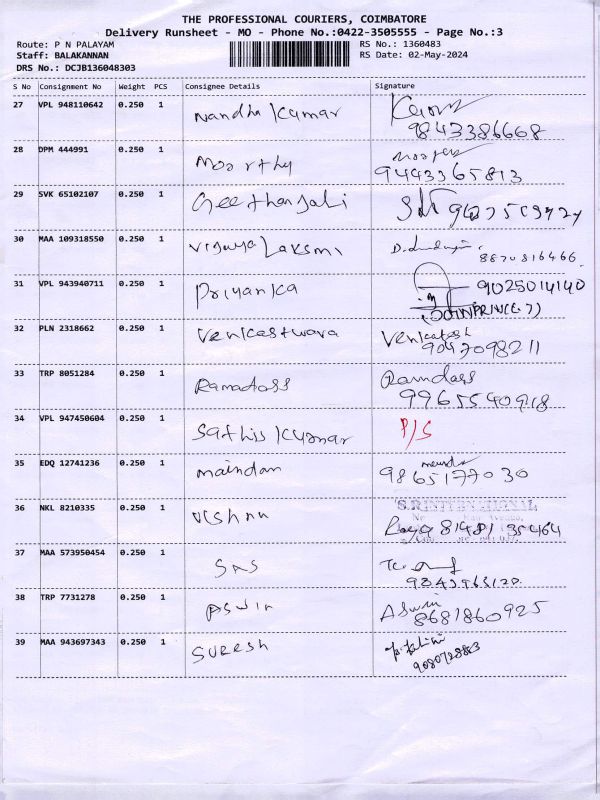 THE PROFESSIONAL COURIERS, COIMBATORE
Delivery Runsheet - MO - Phone No.:0422-3505555 - Page No.:3
Route: P N PALAYAM
Staff: BALAKANNAN
DRS No.: DCJB136048303
RS No.: 1360483
RS Date: 02-May-2024
S No Consignment No Weight PCS Consignee Details Signature
27 VPL 948110642 0.250 1 Nandha Kumar
9843386668
28 DPM 444991 0.250 1 Moorthy
9443365813
29 SVK 65102107 0.250 1 Geethanjali
30 MAA 109318550 0.250 1 Vijaya Laxsmi
8870816466
31 VPL 943940711 0.250 1 Priyanka 9025014140
32 PLN 2318662 0.250 1 Venkateswara Venkatesh
9047098211
33 TRP 8051284 0.250 1 Ramadoss Ramdoss
9965540918
34 VPL 947450604 0.250 1 Sathis Kumar P/S
35 EDQ 12741236 0.250 1 maindan
9865177030
36 NKL 8210335 0.250 1 Vishnu
8148135464
37 MAA 573950454 0.250 1 SNS
38 TRP 7731278 0.250 1 Aswin Aswin
8681860925
39 MAA 943697343 0.250 1 SURESH